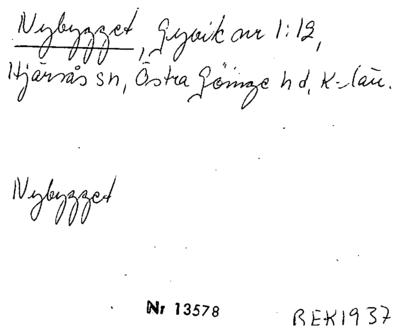 Nybygget, Gyvik nr 1:12,
Hjärsås sn, Östra Göinge hd, K-län.
Nybygget
Nr 13578
REK1937